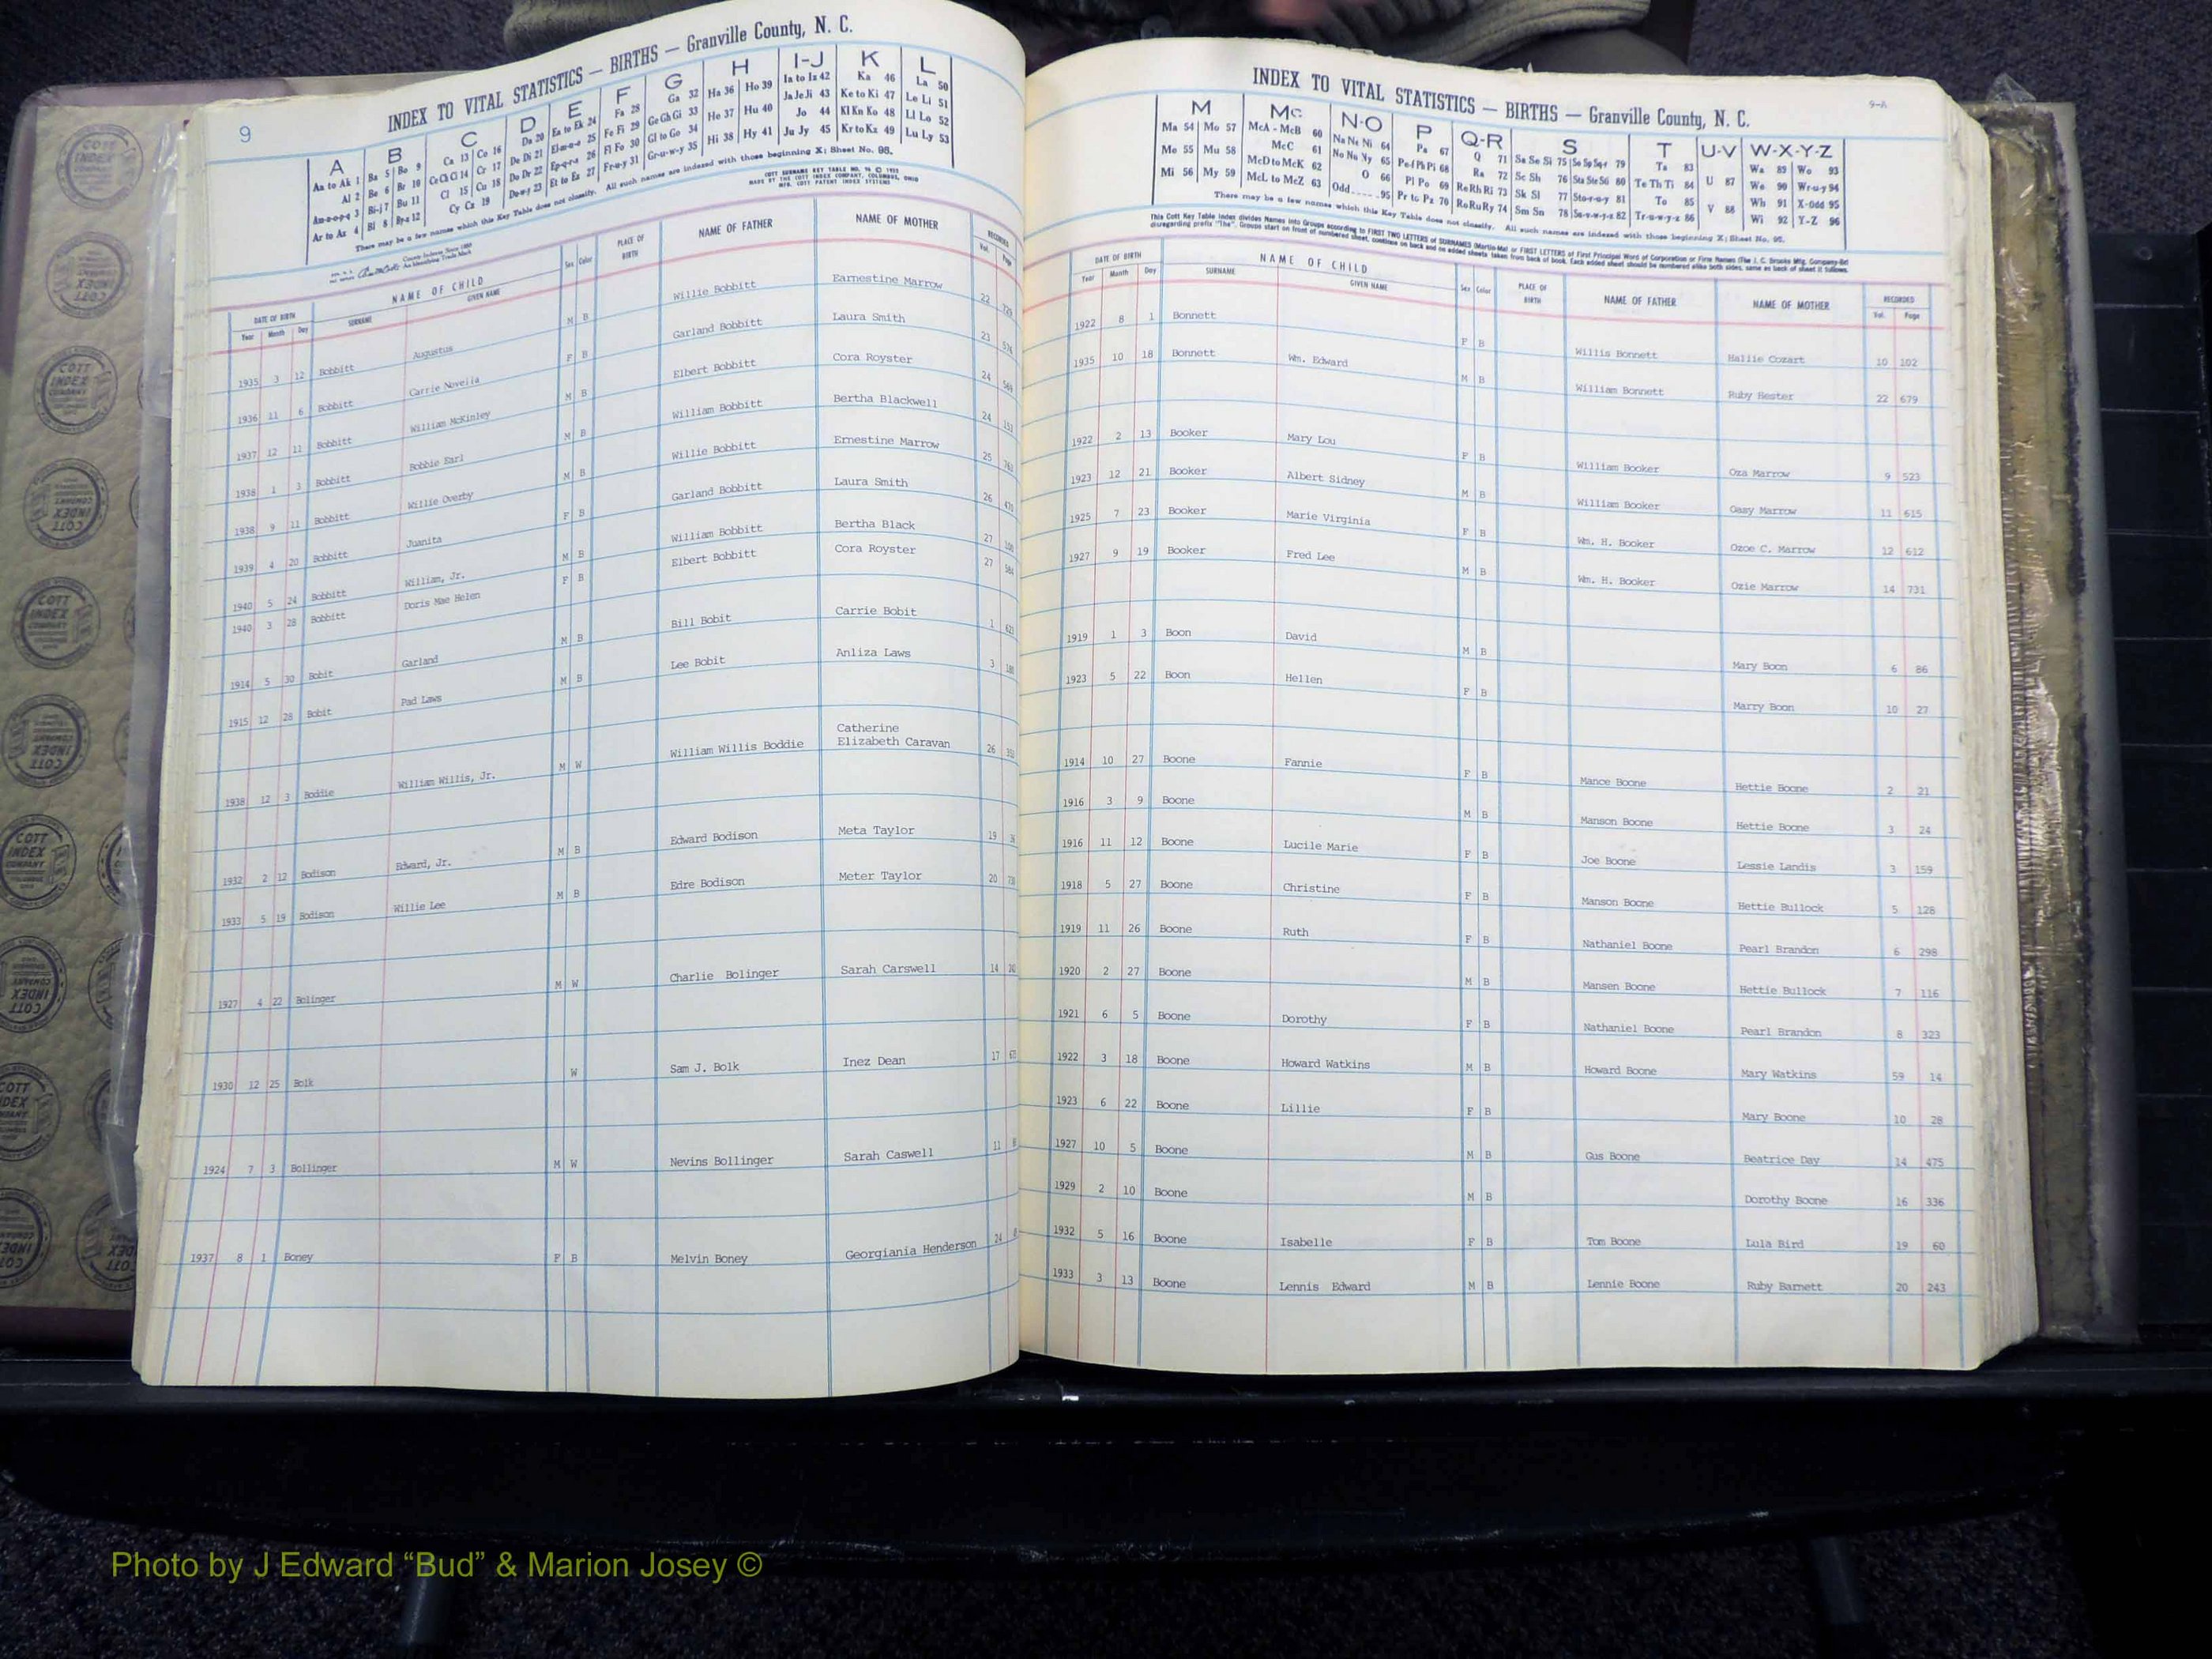 9
INDEX TO VITAL STATISTICS — BIRTHS — Granville County, N. C.
A B C D E F G H I-J K L
Aa to Ak 1 Ba 5 Bo 9 Ca 13 Co 16 Da 20 Ea to Ek 24 Fa 28 Ga 32 Ha 36 Ho 39 Ia to Iz 42 Ka 46 La 50
Al 2 Be 6 Br 10 Ce Ch Ci 14 Cr 17 De Di 21 El-m-n-o 25 Fe Fi 29 Ge Gh Gi 33 He 37 Hu 40 Ja Je Ji 43 Ke to Ki 47 Le Li 51
Am-n-o-p-q 3 Bi-j 7 Bu 11 Cl 15 Cu 18 Do Dr 22 Ep-q-r-s 26 Fl Fo 30 Gl to Go 34 Hi 38 Hy 41 Jo 44 Kl Kn Ko 48 Ll Lo 52
Ar to Az 4 Bl 8 By-z 12 Cy Cz 19 Du-w-y 23 Et to Ez 27 Fr-u-y 31 Gr-u-w-y 35 Ju Jy 45 Kr to Kz 49 Lu Ly 53
There may be a few names which this Key Table does not classify. All such names are indexed with those beginning X; Sheet No. 95.
DATE OF BIRTH NAME OF CHILD Sex Color PLACE OF BIRTH NAME OF FATHER NAME OF MOTHER RECORDED
Year Month Day SURNAME GIVEN NAME Vol. Page
1935 3 12 Bobbitt Augustus M B Willie Bobbitt Earnestine Marrow 22
1936 11 6 Bobbitt Carrie Novella F B Garland Bobbitt Laura Smith 23
1937 12 11 Bobbitt William McKinley M B Elbert Bobbitt Cora Royster 24
1938 1 3 Bobbitt Bobbie Earl M B William Bobbitt Bertha Blackwell 24
1938 9 11 Bobbitt Willie Overby M B Willie Bobbitt Ernestine Marrow 25
1939 4 20 Bobbitt Juanita F B Garland Bobbitt Laura Smith 26
1940 5 24 Bobbitt William, Jr. M B William Bobbitt Bertha Black 27
1940 3 28 Bobbitt Doris Mae Helen F B Elbert Bobbitt Cora Royster 27
1914 5 30 Bobit Garland M B Bill Bobit Carrie Bobit 1
1915 12 28 Bobit Pad Laws M B Lee Bobit Anliza Laws 3
1938 12 3 Boddie William Willis, Jr. M W William Willis Boddie Catherine
Elizabeth Caravan 26
1932 2 12 Bodison Edward, Jr. M B Edward Bodison Meta Taylor 19
1933 5 19 Bodison Willie Lee M B Edre Bodison Meter Taylor 20
1927 4 22 Bolinger M W Charlie Bolinger Sarah Carswell 14
1930 12 25 Bolk W Sam J. Bolk Inez Dean 17
1924 7 3 Bollinger M W Nevins Bollinger Sarah Caswell 11
1937 8 1 Boney F B Melvin Boney Georgiania Henderson 24
9-A
INDEX TO VITAL STATISTICS — BIRTHS — Granville County, N. C.
M Mc N-O P Q-R S T U-V W-X-Y-Z
Ma 54 Mo 57 McA - McB 60 Na Ne Ni 64 Pa 67 Q 71 Sa Se Si 75 So Sp Sq-r 79 Ta 83 U 87 Wa 89 Wo 93
Me 55 Mu 58 McC 61 No Nu Ny 65 Pe-f Ph Pi 68 Ra 72 Sc Sh 76 Sta Ste Sti 80 Te Th Ti 84 We 90 Wr-u-y 94
Mi 56 My 59 McD to McK 62 O 66 Pl Po 69 Re Rh Ri 73 Sk Sl 77 Sto-r-u-y 81 To 85 V 88 Wh 91 X-Odd 95
McL to McZ 63 Odd.....95 Pr to Pz 70 Ro Ru Ry 74 Sm Sn 78 Su-v-w-y-z 82 Tr-u-w-y-z 86 Wi 92 Y-Z 96
There may be a few names which this Key Table does not classify. All such names are indexed with those beginning X; Sheet No. 95.
DATE OF BIRTH NAME OF CHILD Sex Color PLACE OF BIRTH NAME OF FATHER NAME OF MOTHER RECORDED
Year Month Day SURNAME GIVEN NAME Vol. Page
1922 8 1 Bonnett F B Willis Bonnett Hallie Cozart 10 102
1935 10 18 Bonnett Wm. Edward M B William Bonnett Ruby Hester 22 679
1922 2 13 Booker Mary Lou F B William Booker Oza Marrow 9 523
1923 12 21 Booker Albert Sidney M B William Booker Oasy Marrow 11 615
1925 7 23 Booker Marie Virginia F B Wm. H. Booker Ozoe C. Marrow 12 612
1927 9 19 Booker Fred Lee M B Wm. H. Booker Ozie Marrow 14 731
1919 1 3 Boon David M B Mary Boon 6 86
1923 5 22 Boon Hellen F B Marry Boon 10 27
1914 10 27 Boone Fannie F B Mance Boone Hettie Boone 2 21
1916 3 9 Boone M B Manson Boone Hettie Boone 3 24
1916 11 12 Boone Lucile Marie F B Joe Boone Lessie Landis 3 159
1918 5 27 Boone Christine F B Manson Boone Hettie Bullock 5 128
1919 11 26 Boone Ruth F B Nathaniel Boone Pearl Brandon 6 298
1920 2 27 Boone M B Mansen Boone Hettie Bullock 7 116
1921 6 5 Boone Dorothy F B Nathaniel Boone Pearl Brandon 8 323
1922 3 18 Boone Howard Watkins M B Howard Boone Mary Watkins 59 14
1923 6 22 Boone Lillie F B Mary Boone 10 28
1927 10 5 Boone M B Gus Boone Beatrice Day 14 475
1929 2 10 Boone M B Dorothy Boone 16 336
1932 5 16 Boone Isabelle F B Tom Boone Lula Bird 19 60
1933 3 13 Boone Lennis Edward M B Lennie Boone Ruby Barnett 20 243
COTT INDEX COMPANY
Photo by J Edward “Bud” & Marion Josey ©